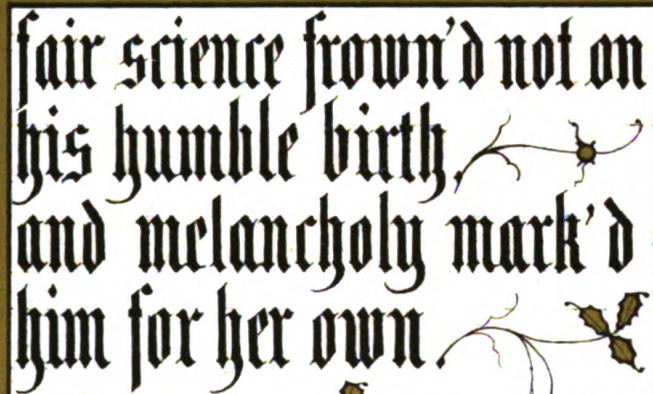 fair science frown'd not on
his humble birth.
and melancholy mark'd
him for her own.